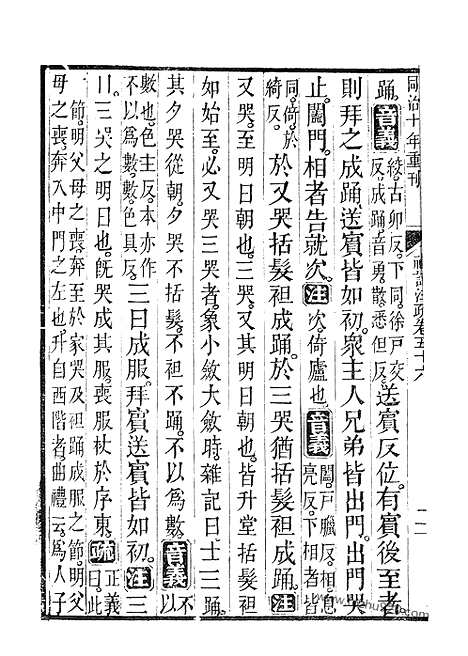 同治十年重刊
禮記注疏卷五十六
踊。音義絞。古卯反。下同。徐戶交反。成踊音勇。散悉但反。送賓反位。有賓後至者
則拜之成踊。送賓皆如初。衆主人兄弟皆出門。出門哭
止。闔門。相者告就次。注次。倚廬也。音義闔。戶臘反。相。息亮反。下相者皆
同。倚。於綺反。於又哭括髮袒成踊。於三哭猶括髮袒成踊。注
又哭。至明日朝也。三哭。又其明日朝也。皆升堂括髮袒
如始至。必又哭三哭者。象小斂大斂時。雜記曰。士三踊。
其夕哭從朝。夕哭不括髮。不袒不踊。不以爲數。音義不以
數也。色主反。本亦作不以爲數。數色具反。三日成服。拜賓送賓皆如初。注三
日。三哭之明日也。既哭成其喪服。杖於序東。疏正義曰。此
一節。明父母之喪。奔至於家哭及袒踊成服之節。明父
母之喪。奔入中門之左也。升自西階者。曲禮云。爲人子